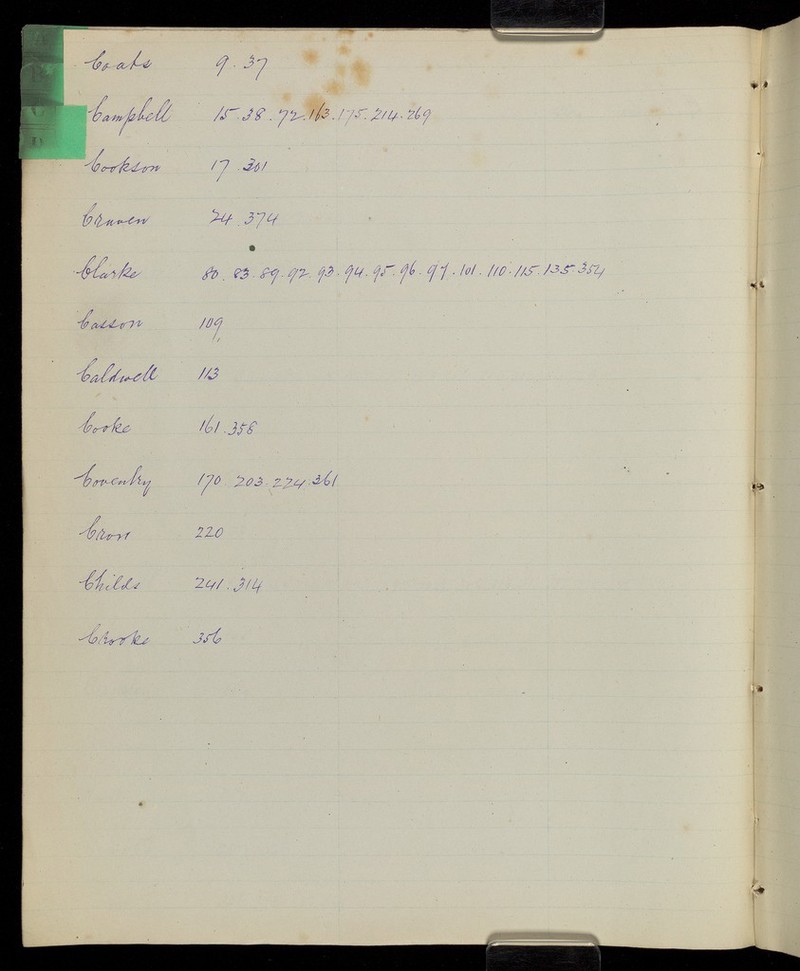 Coats 9. 37
Campbell 15. 38. 72. 163. 175. 214. 269
Cookson 17. 301
Craven 24. 374
Clarke 80. 83. 89. 92. 93. 94. 95. 96. 97. 101. 110. 115. 135. 354
Casson 109
Caldwell 113
Cooke 161. 358
Coventry 170. 203. 224. 361
Cron 220
Childs 241. 314
Crooke 356